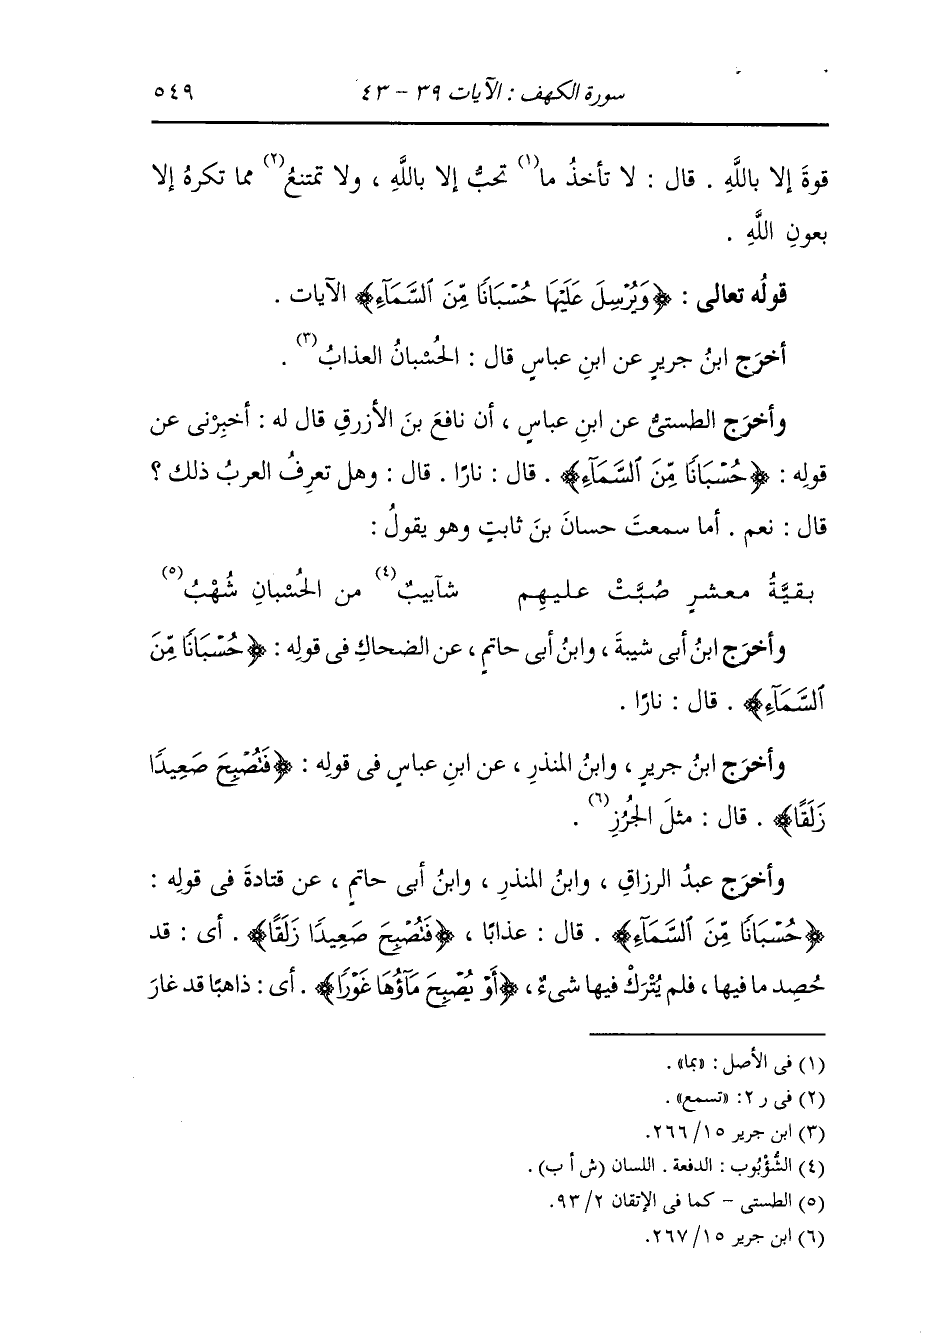 سورة الكهف : الآيات ٣٩ - ٤٣ ٥٤٩
قوةَ إلا باللَّهِ . قال : لا تأخذُ ما(١) تحبُّ إلا باللَّهِ ، ولا تمتنعُ(٢) مما تكرهُ إلا
بعونِ اللَّهِ .
قولُه تعالى : ﴿وَيُرْسِلَ عَلَيْهَا حُسْبَانًا مِّنَ ٱلسَّمَآءِ﴾ الآيات .
أخرَج ابنُ جريرٍ عن ابنِ عباسٍ قال : الحُسْبانُ العذابُ(٣) .
وأخرَج الطستىُّ عن ابنِ عباسٍ ، أن نافعَ بنَ الأزرقِ قال له : أخبِرْنى عن
قولِه : ﴿حُسْبَانًا مِّنَ ٱلسَّمَآءِ﴾ . قال : نارًا . قال : وهل تعرِفُ العربُ ذلك ؟
قال : نعم . أما سمعتَ حسانَ بنَ ثابتٍ وهو يقولُ :
بقيَّةُ معشرٍ صُبَّتْ عليهِم شآبيبٌ(٤) من الحُسْبانِ شُهْبُ(٥)
وأخرَج ابنُ أبى شيبةَ ، وابنُ أبى حاتمٍ ، عن الضحاكِ فى قولِه : ﴿حُسْبَانًا مِّنَ
ٱلسَّمَآءِ﴾ . قال : نارًا .
وأخرَج ابنُ جريرٍ ، وابنُ المنذرِ ، عن ابنِ عباسٍ فى قولِه : ﴿فَتُصْبِحَ صَعِيدًا
زَلَقًا﴾ . قال : مثلَ الجُرُزِ(٦) .
وأخرَج عبدُ الرزاقِ ، وابنُ المنذرِ ، وابنُ أبى حاتمٍ ، عن قتادةَ فى قولِه :
﴿حُسْبَانًا مِّنَ ٱلسَّمَآءِ﴾ . قال : عذابًا ، ﴿فَتُصْبِحَ صَعِيدًا زَلَقًا﴾ . أى : قد
حُصِد ما فيها ، فلم يُتْرَكْ فيها شىءٌ ، ﴿أَوْ يُصْبِحَ مَآؤُهَا غَوْرًا﴾ . أى : ذاهبًا قد غارَ
(١) فى الأصل : «بما» .
(٢) فى ر ٢: «تسمع» .
(٣) ابن جرير ١٥/ ٢٦٦.
(٤) الشُّؤْبُوب : الدفعة . اللسان (ش أ ب) .
(٥) الطستى - كما فى الإتقان ٢/ ٩٣.
(٦) ابن جرير ١٥/ ٢٦٧.